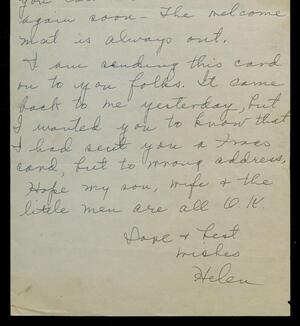 you can
again soon - The welcome
mat is always out.
I am sending this card
on to you folks. It came
back to me yesterday, but
I wanted you to know that
I had sent you a Xmas
card, but to wrong address.
Hope my son, wife & the
little men are all O.K.
Love & best
wishes
Helen